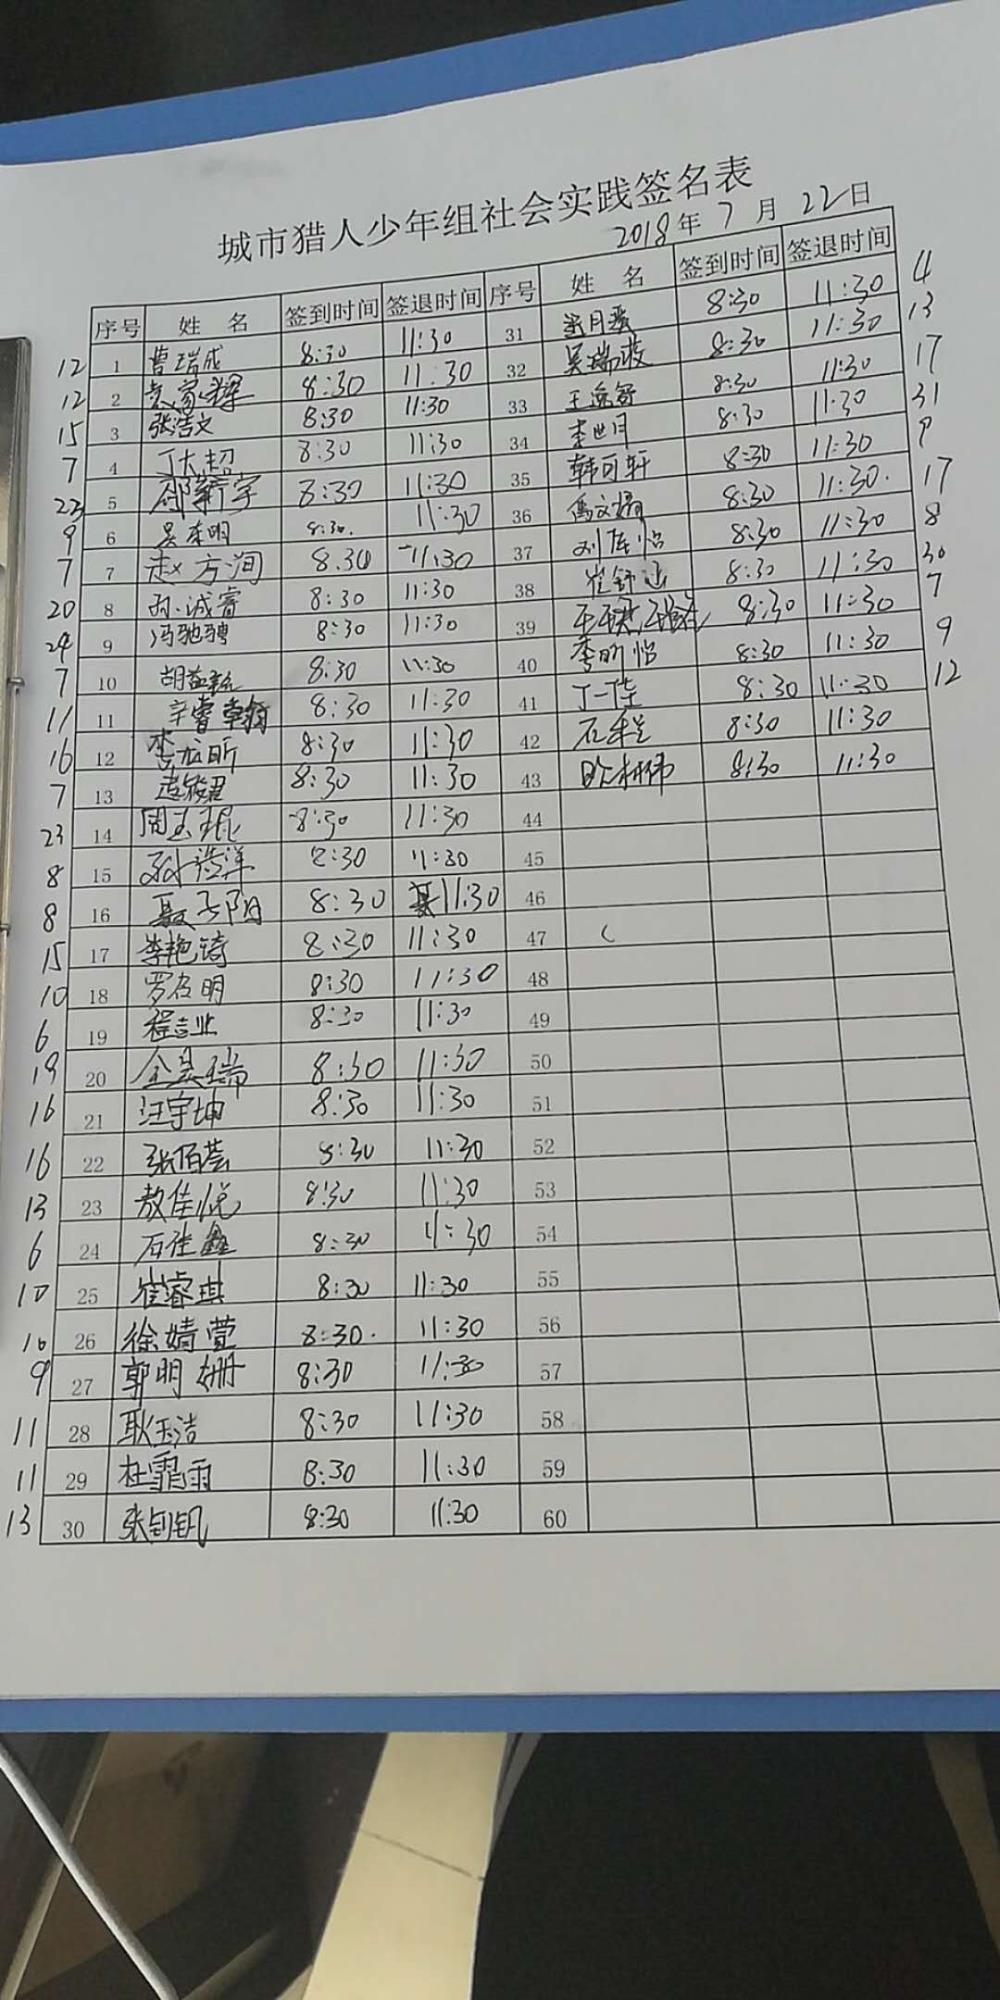 城市猎人少年组社会实践签名表
2018年 7 月 22日
序号 姓 名 签到时间 签退时间 序号 姓 名 签到时间 签退时间
12 1 曹瑞成 8:30 11:30 31 8:30 11:30 4
12 2 8:30 11:30 32 吴瑞 8:30 11:30 13
15 3 张浩文 8:30 11:30 33 王逸舒 8:30 11:30 17
7 4 丁大超 8:30 11:30 34 李世月 8:30 11:30 31
23 5 新宇 8:30 11:30 35 韩可轩 8:30 11:30 9
9 6 吴東明 8:30. 11:30 36 冯文 8:30 11:30. 17
7 7 赵方洵 8.30 11:30 37 刘 怡 8:30 11:30 8
20 8 孙诚睿 8:30 11:30 38 崔舒涵 8:30 11:30 30
24 9 冯驰骋 8:30 11:30 39 8:30 11:30 7
7 10 胡益 8:30 11:30 40 李昕怡 8:30 11:30 9
11 11 辛睿 8:30 11:30 41 丁一佳 8:30 11:30 12
16 12 李 昕 8:30 11:30 42 石 8:30 11:30
7 13 8:30 11:30 43 8:30 11:30
23 14 周玉琨 8:30 11:30 44
8 15 孙浩洋 8:30 11:30 45
8 16 聂子阳 8:30 11:30 46
15 17 李艳锜 8:30 11:30 47
10 18 罗启明 8:30 11:30 48
6 19 程吉业 8:30 11:30 49
19 20 金昊瑞 8:30 11:30 50
16 21 汪宇坤 8:30 11:30 51
16 22 张佰芸 8:30 11:30 52
13 23 敖佳悦 8:30 11:30 53
6 24 石佳鑫 8:30 11:30 54
10 25 崔睿琪 8:30 11:30 55
16 26 徐婧萱 8:30. 11:30 56
9 27 郭明姗 8:30 11:30 57
11 28 耿玉洁 8:30 11:30 58
11 29 杜霏雨 8:30 11:30 59
13 30 张钊钒 8:30 11:30 60